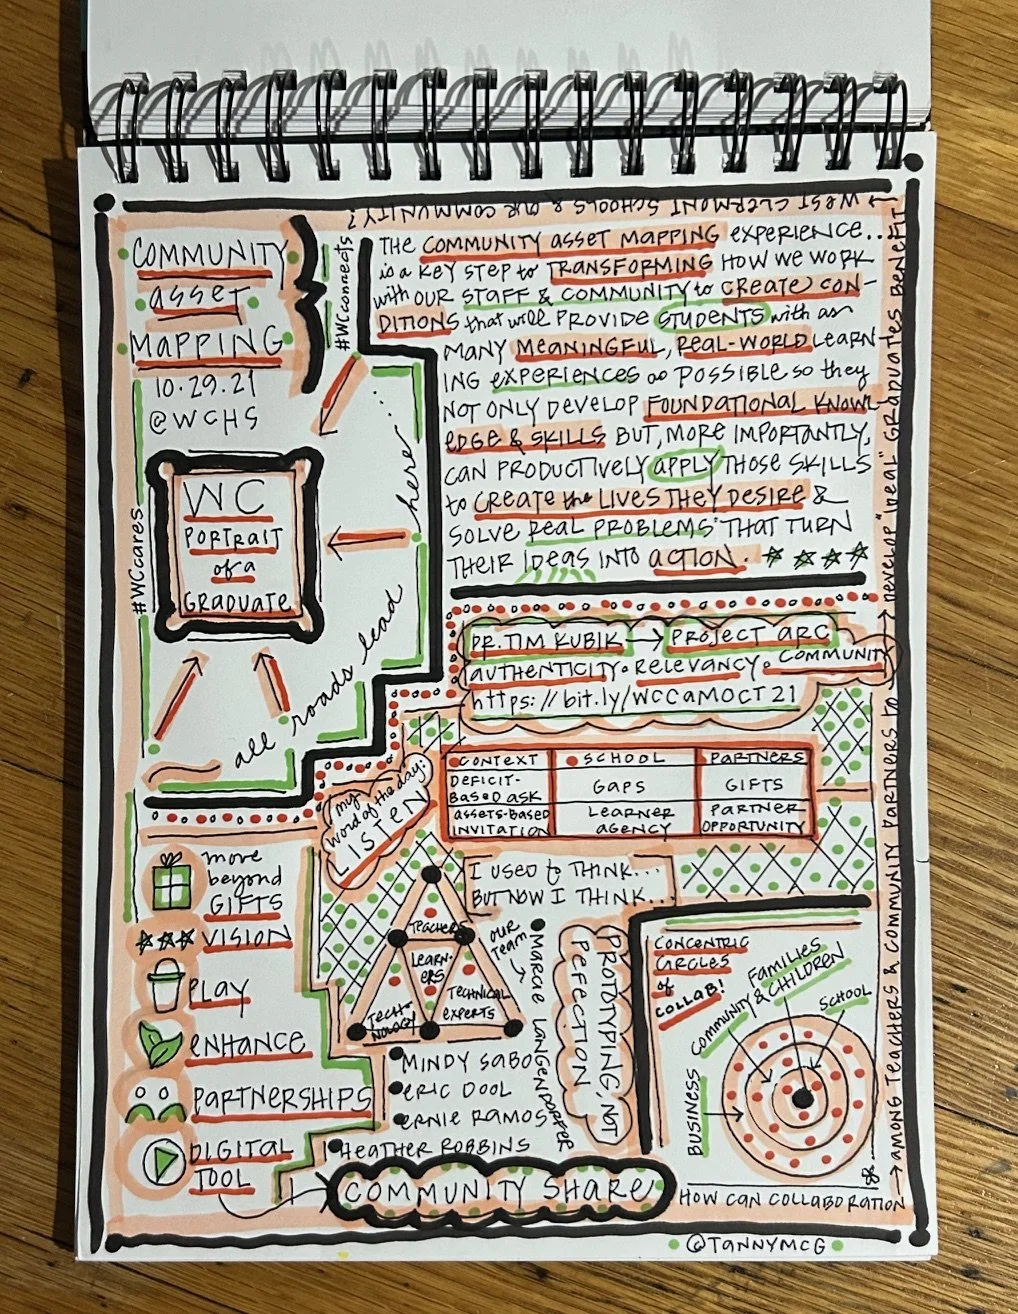 COMMUNITY
asset
MAPPING
10.29.21
@WCHS
#WCconnects
#WCcares
WC
PORTRAIT
of a
GRADUATE
all roads lead here...
THE COMMUNITY ASSET MAPPING EXPERIENCE...
is a KEY STEP to TRANSFORMING HOW WE WORK
with OUR STAFF & COMMUNITY to CREATE CON-
DITIONS that will PROVIDE STUDENTS with as
MANY MEANINGFUL, REAL-WORLD LEARN-
ING EXPERIENCES as POSSIBLE so they
NOT ONLY DEVELOP FOUNDATIONAL KNOWL-
EDGE & SKILLS BUT, MORE IMPORTANTLY,
CAN PRODUCTIVELY APPLY THOSE SKILLS
to CREATE the LIVES THEY DESIRE &
SOLVE REAL PROBLEMS THAT TURN
THEIR IDEAS INTO ACTION.
DR. TIM KUBIK → PROJECT ARC
AUTHENTICITY • RELEVANCY • COMMUNITY
https://bit.ly/WCCAMOCT21
my
word of the day:
LISTEN
CONTEXT SCHOOL PARTNERS
DEFICIT-
BASED ASK GAPS GIFTS
ASSETS-BASED
INVITATION LEARNER
AGENCY PARTNER
OPPORTUNITY
I USED to THINK...
BUT NOW I THINK...
move
beyond
GIFTS
VISION
PLAY
ENHANCE
PARTNERSHIPS
DIGITAL
TOOL
TEACHERS
LEARN-
ERS
TECH-
NOLOGY
TECHNICAL
EXPERTS
OUR
TEAM →
MARCIE LANGENDORFER
MINDY SABO
ERIC DOOL
ERNIE RAMOS
HEATHER ROBBINS
PROTOTYPING, NOT
PEFECTION
COMMUNITY SHARE
CONCENTRIC
CIRCLES
of
COLLAB!
FAMILIES
& CHILDREN
SCHOOL
COMMUNITY
BUSINESS
HOW CAN COLLABORATION
→ AMONG TEACHERS & COMMUNITY PARTNERS to → DEVELOP "IDEAL" GRADUATES BENEFIT
← WEST CLERMONT SCHOOLS & OUR COMMUNITY?
@TANNYMCG